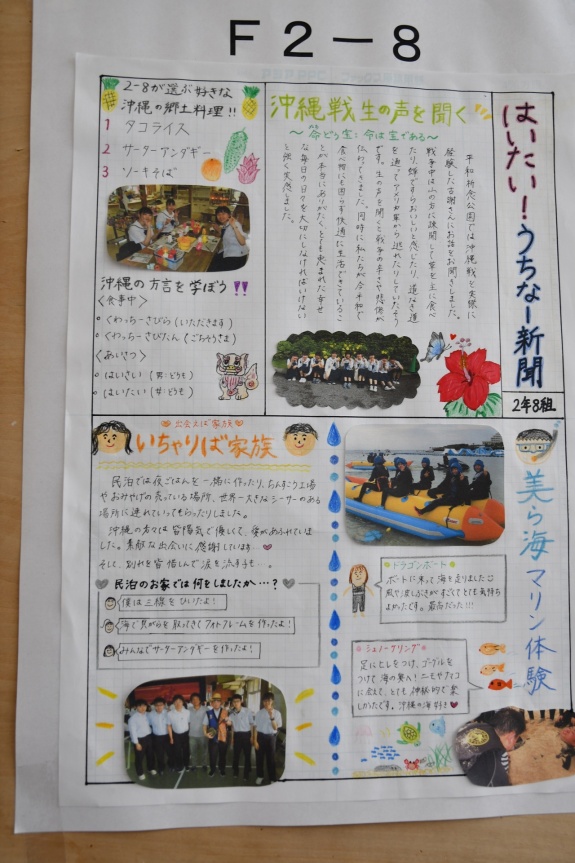 F2-8
はいたい!うちなー新聞
2年8組
2-8が選ぶ好きな
沖縄の郷土料理!!
1 タコライス
2 サーターアンダギー
3 ソーキそば
沖縄の方言を学ぼう!!
<食事中>
・くわっちーさびら(いただきます)
・くわっちーさびたん(ごちそうさま)
<あいさつ>
・はいさい(男:どうも)
・はいたい(女:どうも)
沖縄戦生の声を聞く
〜命どぅ宝:今は宝である〜
平和祈念公園では沖縄戦を実際に
経験した さんにお話をお聞きしました。
戦争中は山の方に疎開して草を主に食べ
たり、蝉ですらおいしいと感じたり、道なき道
を通ってアメリカ軍から逃れたりしていたそう
です。生の声を聞くと戦争の辛さや恐怖が
伝わってきました。同時に私たちが今平和で
食べ物にも困らず快適に生活できているこ
とが本当にありがたく、とても恵まれた幸せ
な毎日の日々を大切にしなければいけない
と強く実感しました。
出会えば家族
いちゃりば家族
民泊では夜ごはんを一緒に作ったり、ちんすこう工場
やおみやげの売っている場所、世界一大きなシーサーのある
場所に連れていってもらったりしました。
沖縄の方々は皆陽気で優しくて、愛があふれていま
した。素敵な出会いに感謝しています
そして、別れを皆惜しんで涙を流す子も...
民泊のお家では何をしましたか…?
僕は三線をひいたよ!
海で貝がらを取ってきてフォトフレームを作ったよ!
みんなでサーターアンダギーを作ったよ!
美ら海マリン体験
ドラゴンボート
ボートに乗って海を走りました
風や波しぶきがすごくてとても気持ち
よかったです。最高だった!!!
シュノーケリング
足にヒレをつけ、ゴーグルを
つけて海の奥へ!ニモやナマコ
に会えて、とても神秘的で楽
しかったです。沖縄の海好き